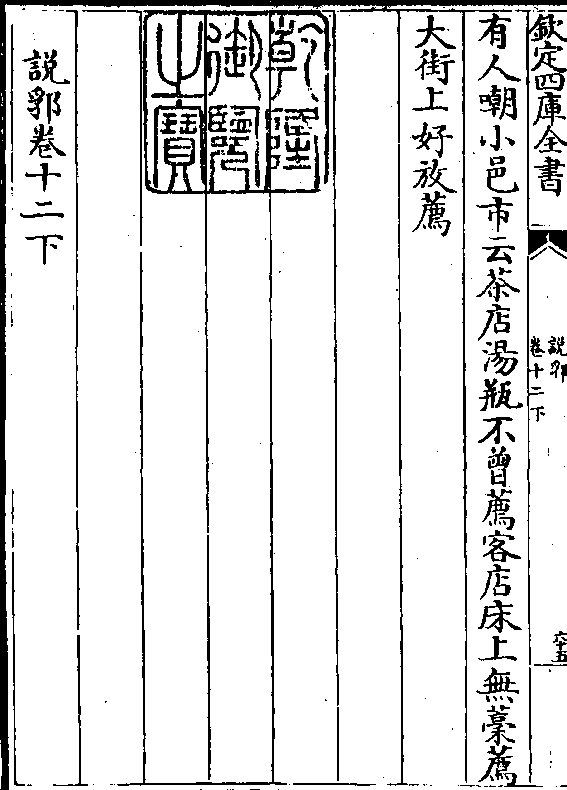 欽定四庫全書
說郛
卷十二下
六十五
有人嘲小邑市云茶店湯瓶不曽薦客店床上無藁薦
大街上好放薦
乾隆
御覽
之寳
說郛卷十二下